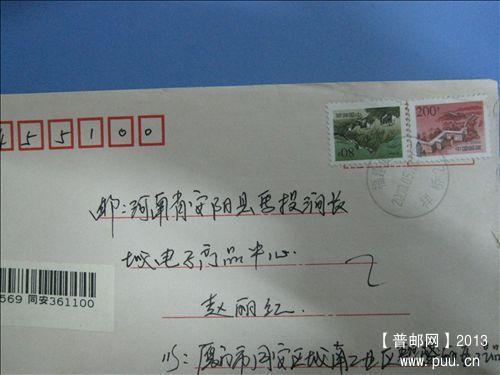 455100
200分
中国邮政
80分
中国邮政
邮:河南省安阳县马投涧长
城电子商品中心
赵丽红
569 同安361100
厦门市同安区城南工业区
【普邮网】2013
www.puu.cn